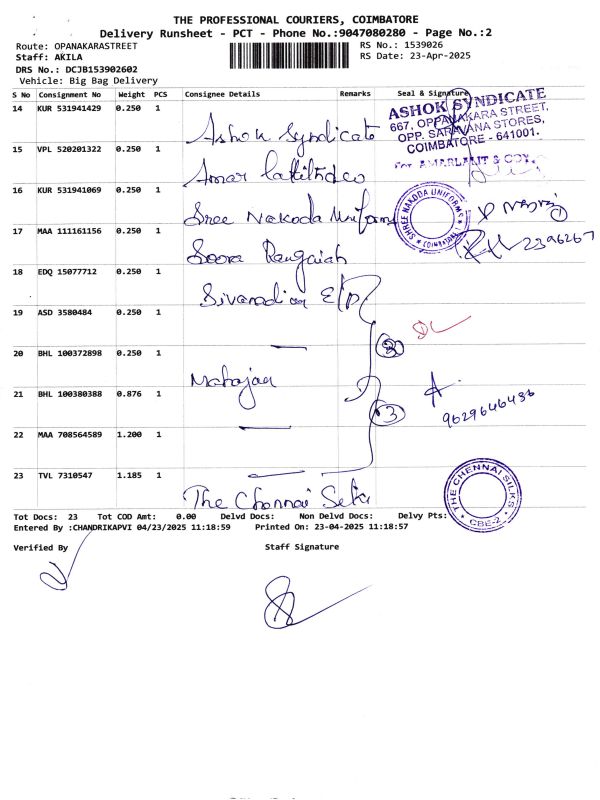 THE PROFESSIONAL COURIERS, COIMBATORE
Delivery Runsheet - PCT - Phone No.:9047080280 - Page No.:2
Route: OPANAKARASTREET
RS No.: 1539026
Staff: AKILA
RS Date: 23-Apr-2025
DRS No.: DCJB153902602
Vehicle: Big Bag Delivery
S No Consignment No Weight PCS Consignee Details Remarks Seal & Signature
14 KUR 531941429 0.250 1 Ashok Syndicate
ASHOK SYNDICATE
667, OPPANAKARA STREET,
OPP. SARAVANA STORES,
COIMBATORE - 641001.
15 VPL 520201322 0.250 1 Amar
For AMARLALIT & COY.
16 KUR 531941069 0.250 1 Sree Nakoda Uniforms
SHREE NAKODA UNIFORMS
COIMBATORE
17 MAA 111161156 0.250 1 Rangaiah
2396267
18 EDQ 15077712 0.250 1
19 ASD 3580484 0.250 1
20 BHL 100372898 0.250 1 Mahajan
21 BHL 100380388 0.876 1
3
9629646436
22 MAA 708564589 1.200 1
23 TVL 7310547 1.185 1 The Chennai Silks
THE CHENNAI SILKS
CBE-2
Tot Docs: 23 Tot COD Amt: 0.00 Delvd Docs: Non Delvd Docs: Delvy Pts:
Entered By :CHANDRIKAPVI 04/23/2025 11:18:59 Printed On: 23-04-2025 11:18:57
Verified By Staff Signature